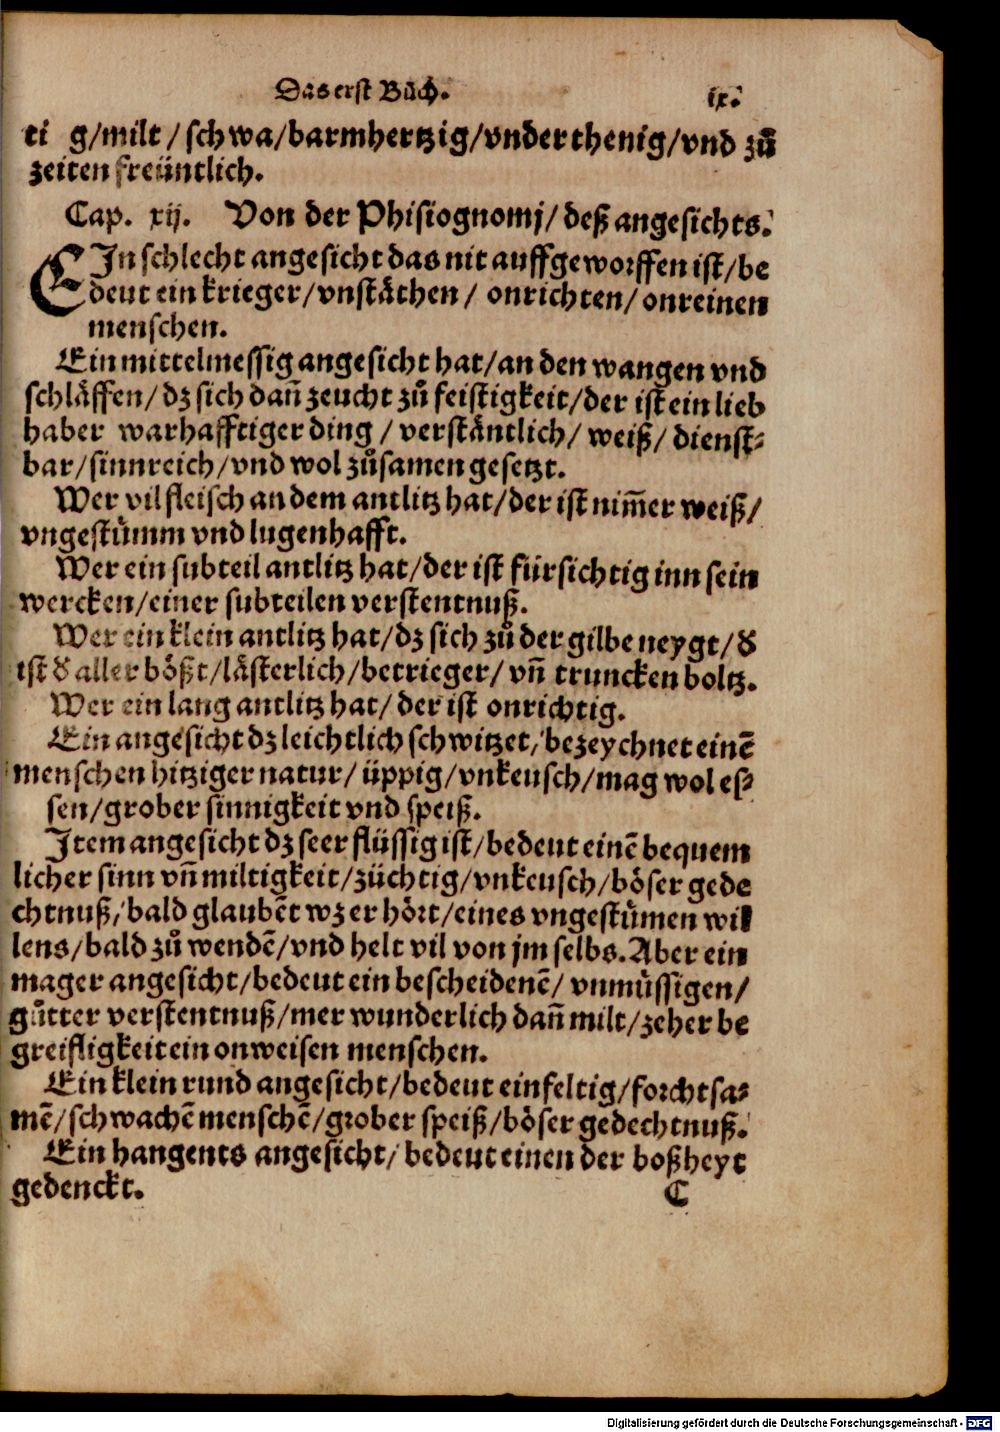 Das erst Bůch. ix.
ti g/milt / schwa/barmhertzig/vnderthenig/vnd zů
zeiten freüntlich.
Cap. xij. Von der Phisiognomj/ deß angesichts.
EIn schlecht angesicht das nit auffgeworffen ist/be
deut ein krieger/vnstäthen / onrichten/ onreinen
menschen.
Ein mittelmessig angesicht hat/an den wangen vnd
schläffen/ dz sich dañ zeucht zů feistigkeit/der ist ein lieb
haber warhafftiger ding / verständtlich/ weiß/ dienst⸗
bar/sinnreich/vnd wol zůsamen gesetzt.
Wer vil fleisch an dem antlitz hat/der ist nim̃er weiß/
vngestům̃ vnd lugenhafft.
Wer ein subteil antlitz hat/der ist fürsichtig inn sein
wercken/einer subteilen verstentnuß.
Wer ein klein antlitz hat/dz sich zů der gilbe neygt/d̕
ist d̕ aller bößt/lästerlich/betrieger/ vñ truncken boltz.
Wer ein lang antlitz hat/ der ist onrichtig.
Ein angesicht dz leichtlich schwitzet/bezeychnet einẽ
menschen hitziger natur/ üppig/vnkeusch/mag wol es⸗
sen/grober sinnigkeit vnd speiß.
Item angesicht dz seer flüssig ist/bedeut einẽ bequem
licher sinn vñ miltigkeit/züchtig/vnkeusch/böser gede
chtnuß/bald glaubẽt wz er hört/eines vngestůmen wil
lens/bald zů wendẽ/vnd helt vil von jm selbs. Aber ein
mager angesicht/bedeut ein bescheidenẽ/ vnmüssigen/
gůtter verstentnuß/mer wunderlich dañ milt/zeher be
greiffligkeit ein onweisen menschen.
Ein klein rund angesicht/bedeut einfeltig/forchtsa⸗
mẽ/schwachẽ menschẽ/grober speiß/böser gedechtnuß.
Ein hangents angesicht/ bedeut einen der boßheyt
gedenckt. C
Digitalisierung gefördert durch die Deutsche Forschungsgemeinschaft - DFG